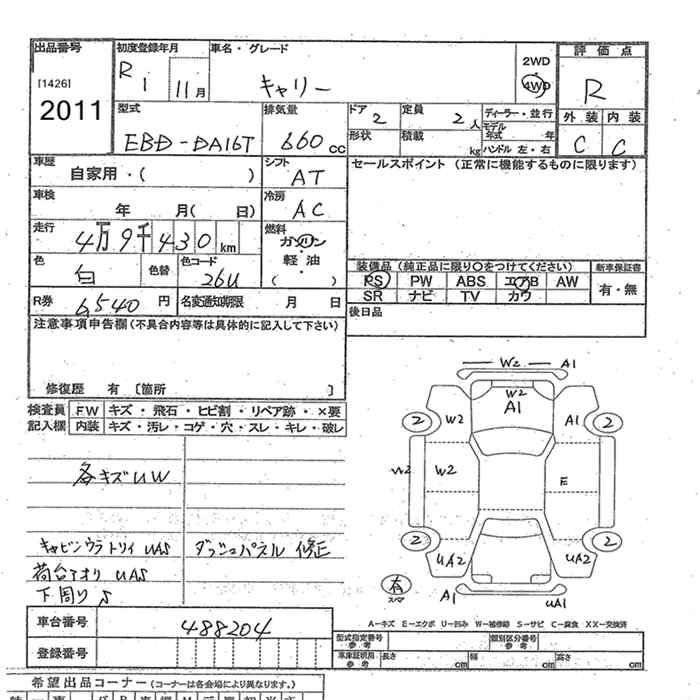 出品番号 初度登録年月 車名・グレード 評価点
[1426] 2011
R 1 11月 キャリー 2WD・4WD R
型式 排気量 ドア 定員 ディーラー・並行 外装 内装
EBD-DA16T 660cc 2 2人 モデル年式 年 C C
形状 積載 kg ハンドル 左・右
車歴 シフト セールスポイント (正常に機能するものに限ります)
自家用・( ) AT
車検 冷房
年 月( 日) AC
走行 燃料
4万9千430km ガソリン・軽油( )
色 色替 色コード 装備品(純正品に限り○をつけてください) 新車保証書
白 26U PS PW ABS エアB AW 有・無
SR ナビ TV カワ
R券 6,540円 名変通知期限 月 日 後日品
注意事項申告欄(不具合内容等は具体的に記入して下さい)
修復歴 有〔箇所 〕
検査員 FW キズ・飛石・ヒビ割・リペア跡・×要
記入欄 内装 キズ・汚レ・コゲ・穴・スレ・キレ・破レ
各キズUW
キャビンウラトリイUAS ダッシュパネル修正
荷台アオリUAS
下周りS
W2 A1
W2
A1
2 W2 A1 2
W2 W2 E
2 UA2 UA2 2
有 スペア A1 UA1
A-キズ E-エクボ U-凹み W-補修跡 S-サビ C-腐食 XX-交換済
車台番号 488204
登録番号
型式指定番号 参考 類別区分番号 参考
車庫証明用 参考 長さ cm 幅 cm 高さ cm
希望出品コーナー(コーナーは各会場により異なります。)